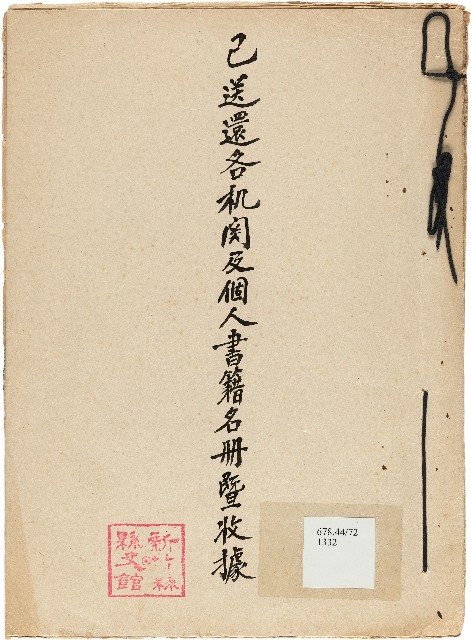 已送還各机関及個人書籍名冊暨收據
新竹縣
縣史館
678.44/72
1332